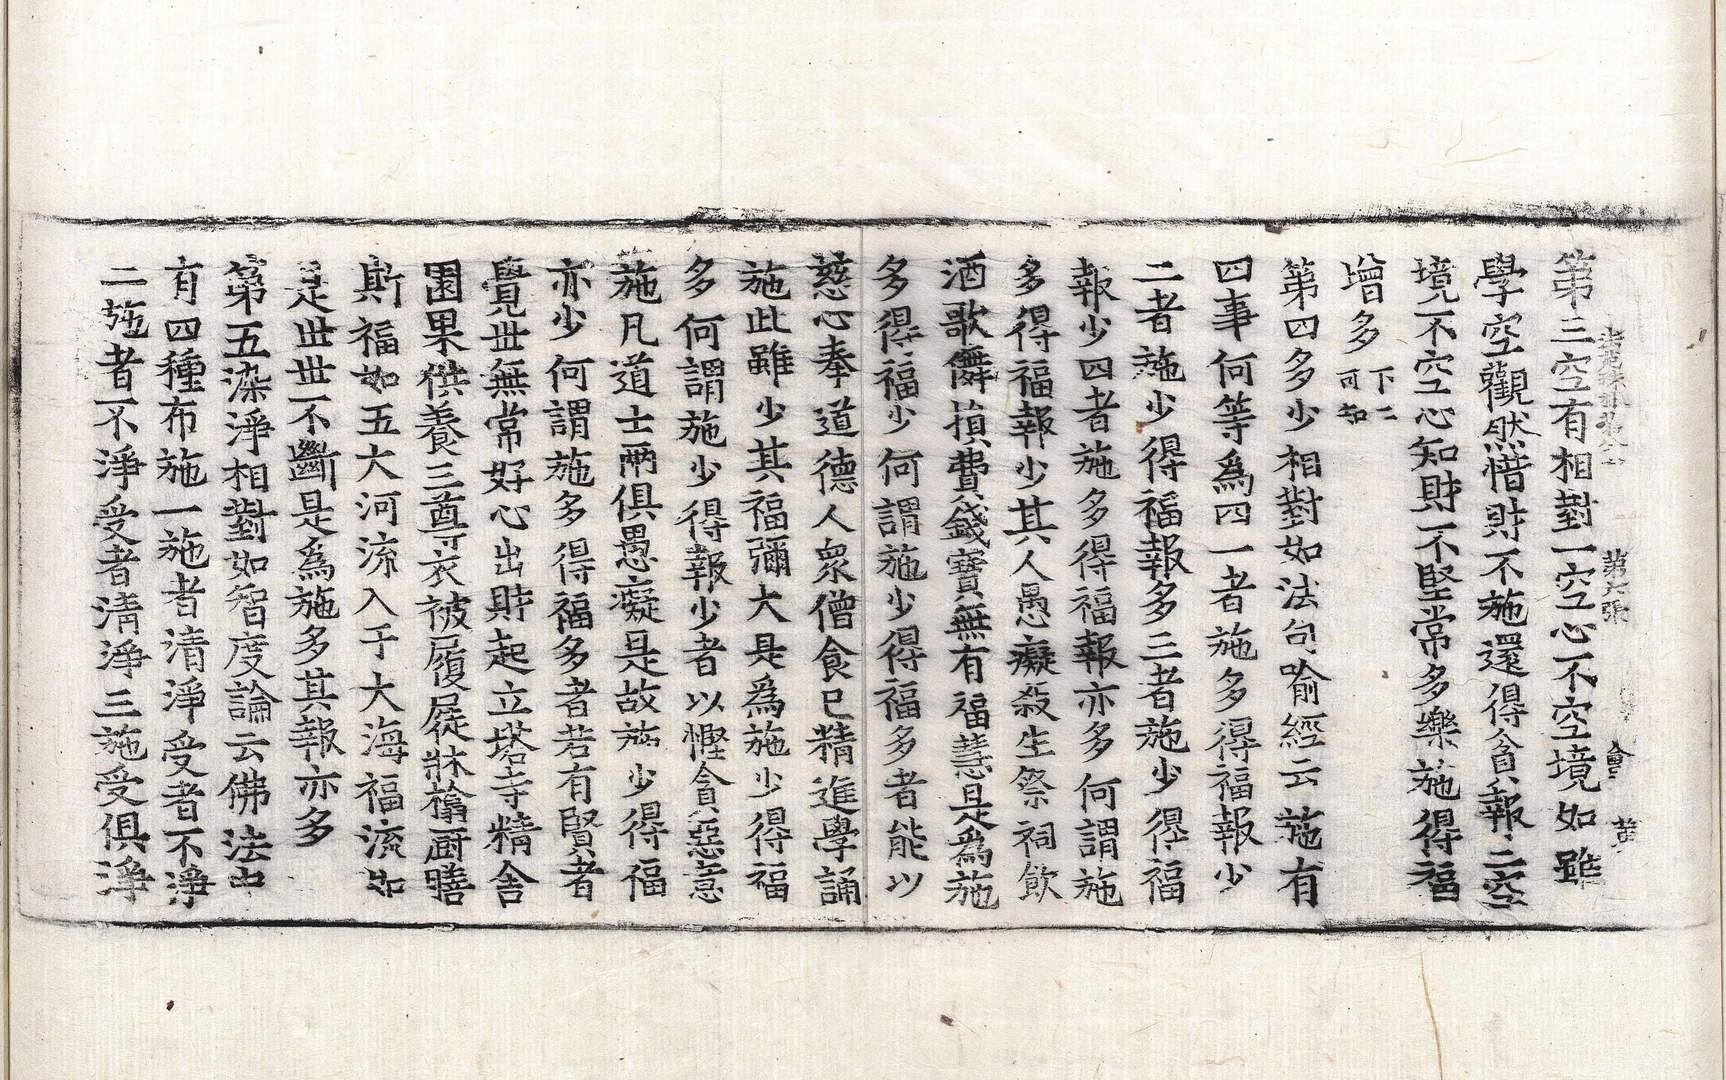 第三空有相對一空心不空境如雖
學空觀然惜財不施還得貧報二空
境不空心知財不堅常多樂施得福
增多下二可知
第四多少相對如法句喻經云施有
四事何等爲四一者施多得福報少
二者施少得福報多三者施少得福
報少四者施多得福報亦多何謂施
多得福報少其人愚癡殺生祭祠飲
酒歌儛損費錢寶無有福慧是爲施
多得福少何謂施少得福多者能以
慈心奉道德人衆僧食已精進學誦
施此雖少其福彌大是爲施少得福
多何謂施少得報少者以慳貪惡意
施凡道士兩俱愚癡是故施少得福
亦少何謂施多得福多者若有賢者
覺世無常好心出財起立塔寺精舍
園果供養三尊衣被履屣牀㯓厨膳
斯福如五大河流入于大海福流如
是世世不斷是爲施多其報亦多
第五染淨相對如智度論云佛法中
有四種布施一施者清淨受者不淨
二施者不淨受者清淨三施受俱淨
第六張